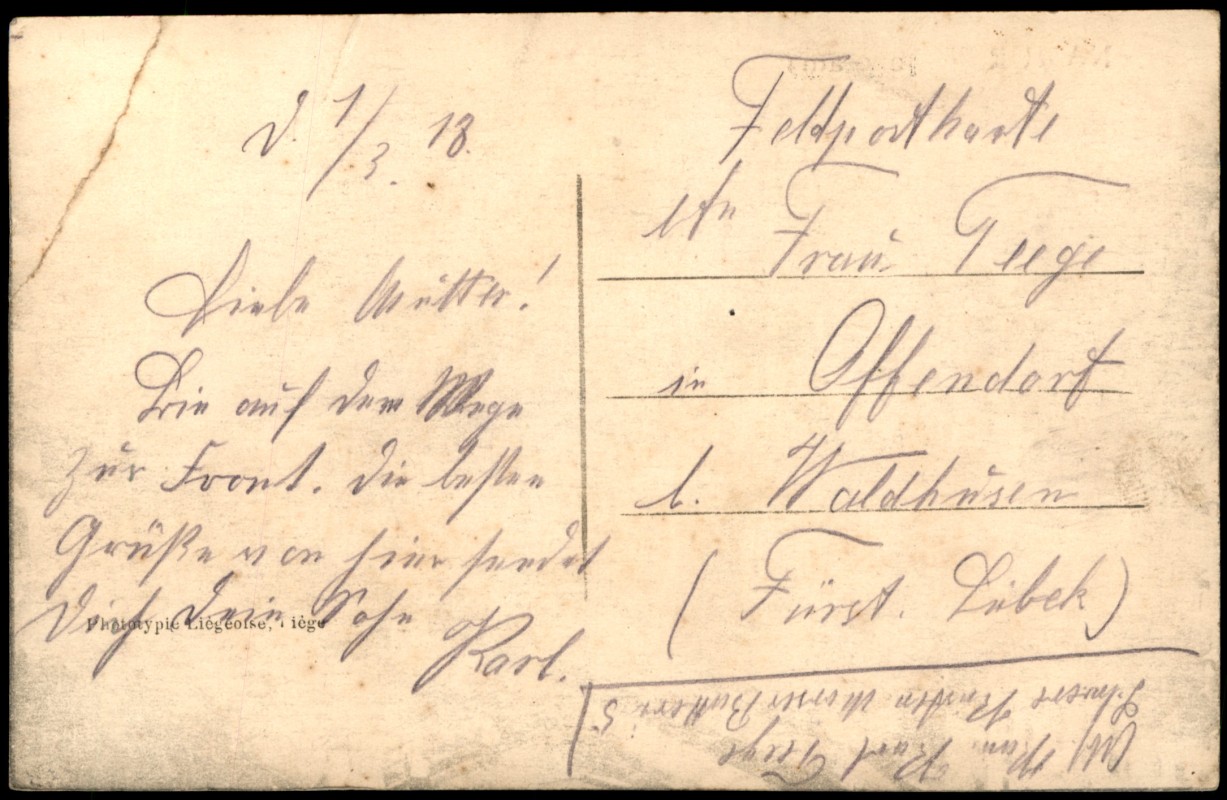 d. 1/3. 18.
Liebe Mutter!
Bin auf dem Wege
zur Front. Die besten
Grüße von hier sendet
Dich Dein Sohn
Karl.
Phototypie Liégeoise, Liége
Feldpostkarte
An Frau Teege
in Offendorf
b. Waldhusen
(Fürst. Lübek)
Kan. Karl Teege
Schwere Mörser Batterie 5.